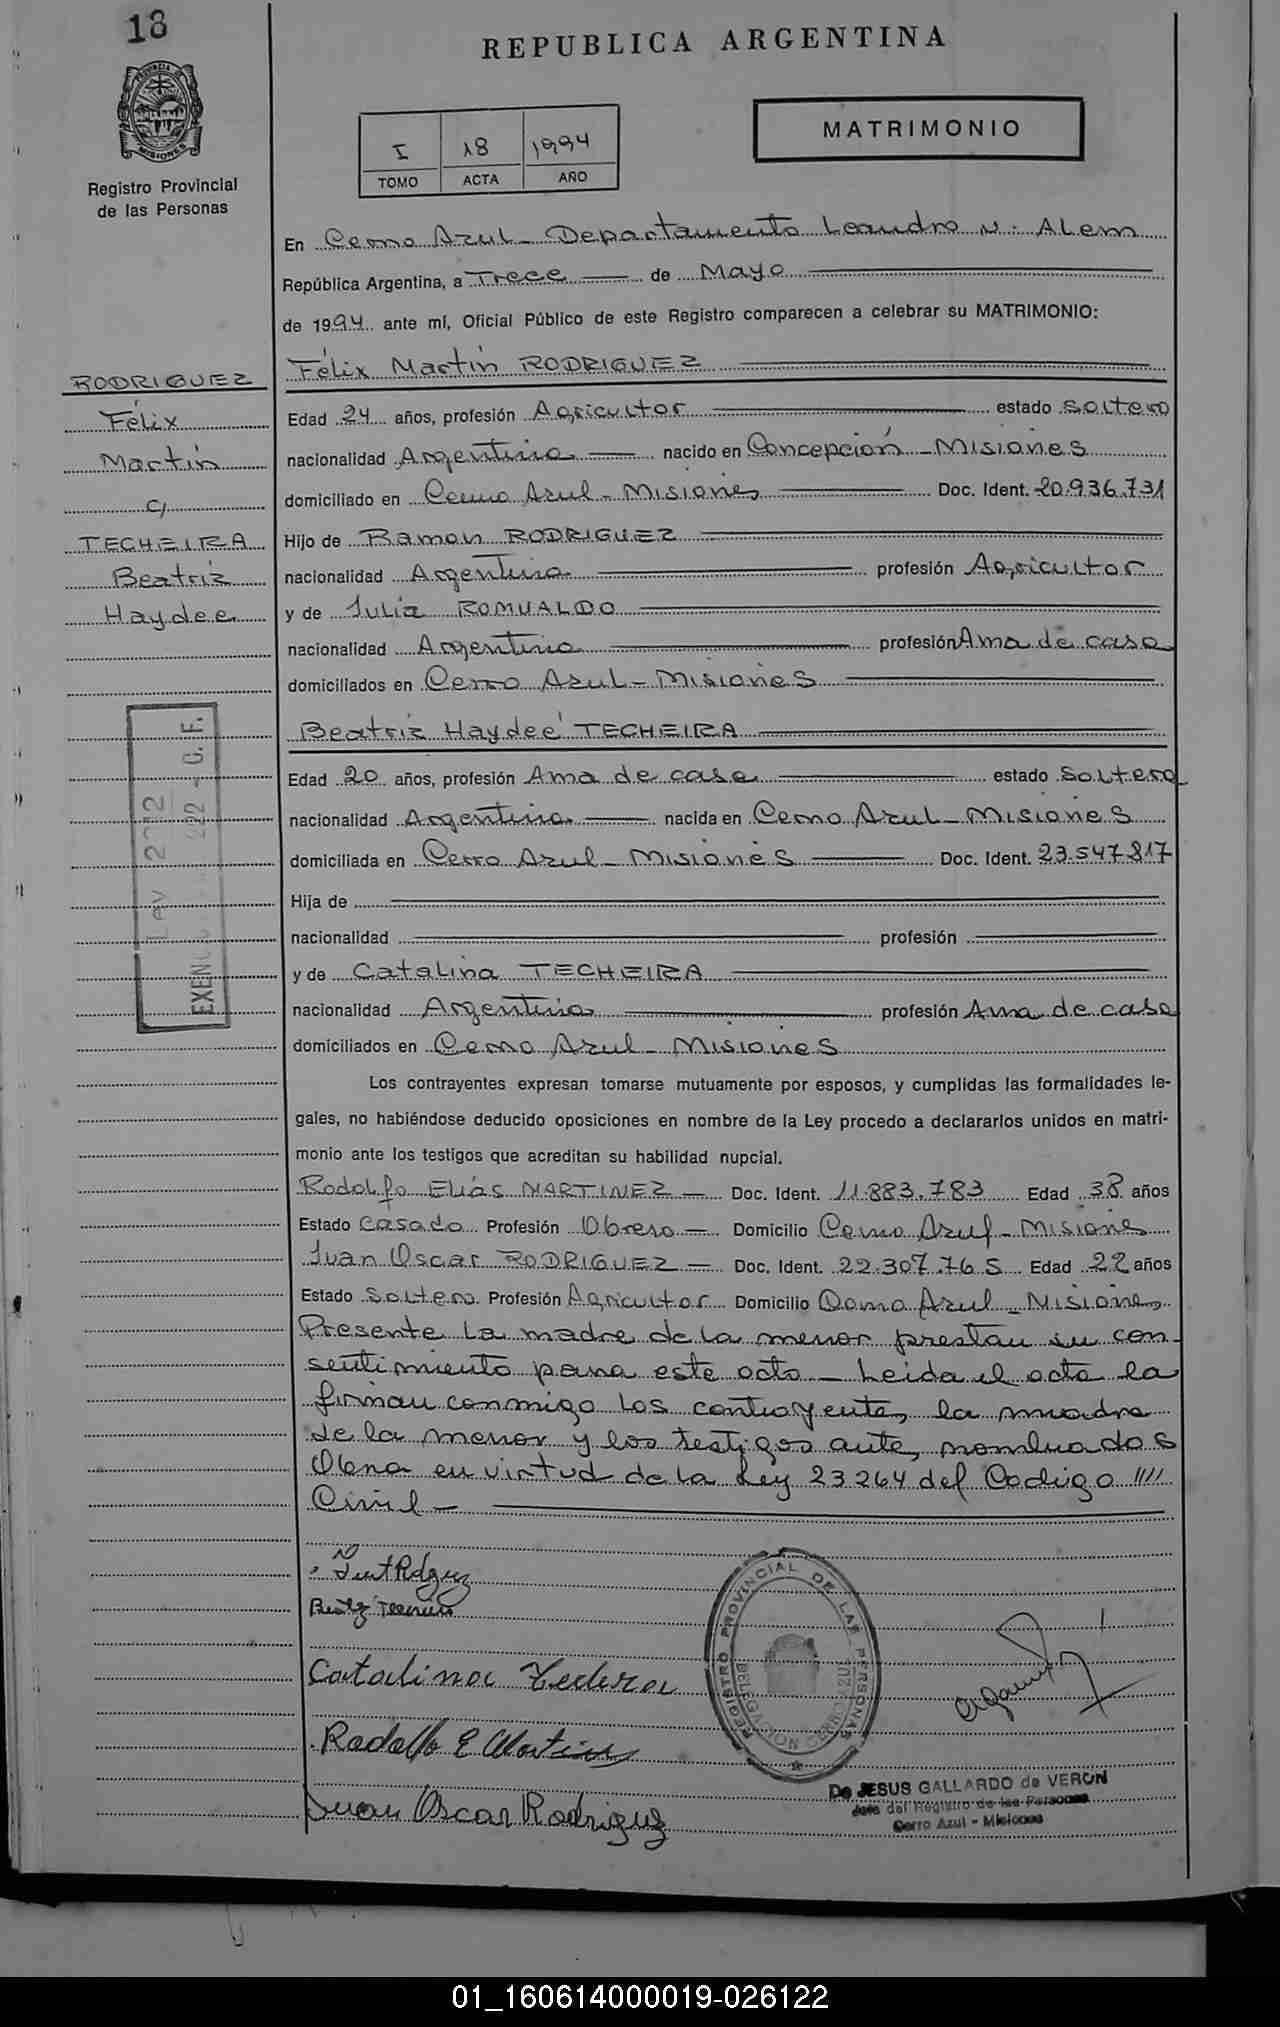 18
REPUBLICA ARGENTINA
PROVINCIA DE
MISIONES
Registro Provincial
de las Personas
I 18 1994
TOMO ACTA AÑO
MATRIMONIO
En Cerro Azul - Departamento Leandro N. Alem
República Argentina, a Trece de Mayo
de 1994 ante mí, Oficial Público de este Registro comparecen a celebrar su MATRIMONIO:
RODRIGUEZ
Félix
Martín
c/
TECHEIRA
Beatriz
Haydee
Félix Martín RODRIGUEZ
Edad 24 años, profesión Agricultor estado soltero
nacionalidad Argentina nacido en Concepción - Misiones
domiciliado en Cerro Azul - Misiones Doc. Ident. 20.936.731
Hijo de Ramon RODRIGUEZ
nacionalidad Argentina profesión Agricultor
y de Julia ROMUALDO
nacionalidad Argentina profesión Ama de casa
domiciliados en Cerro Azul - Misiones
Beatriz Haydeé TECHEIRA
Edad 20 años, profesión Ama de casa estado soltera
nacionalidad Argentina nacida en Cerro Azul - Misiones
domiciliada en Cerro Azul - Misiones Doc. Ident. 23.547.817
Hija de
nacionalidad profesión
y de Catalina TECHEIRA
nacionalidad Argentina profesión Ama de casa
domiciliados en Cerro Azul - Misiones
Los contrayentes expresan tomarse mutuamente por esposos, y cumplidas las formalidades le-
gales, no habiéndose deducido oposiciones en nombre de la Ley procedo a declararlos unidos en matri-
monio ante los testigos que acreditan su habilidad nupcial.
Rodolfo Elías MARTINEZ - Doc. Ident. 11.883.783 Edad 38 años
Estado Casado Profesión Obrero - Domicilio Cerro Azul - Misiones
Juan Oscar RODRIGUEZ - Doc. Ident. 22.307.765 Edad 22 años
Estado Soltero Profesión Agricultor Domicilio Cerro Azul - Misiones
Presente la madre de la menor prestan su con-
sentimiento para este acto - Leida el acta la
firman conmigo los contrayentes, la madre
de la menor y los testigos antes nombrados
Obra en virtud de la Ley 23264 del Codigo ////
Civil -
Catalina Techera
Rodolfo E Martinez
Juan Oscar Rodriguez
REGISTRO PROVINCIAL DE LAS PERSONAS
DELEGACION CERRO AZUL
De JESUS GALLARDO de VERON
Jefe del Registro de las Personas
Cerro Azul - Misiones
01_160614000019-026122